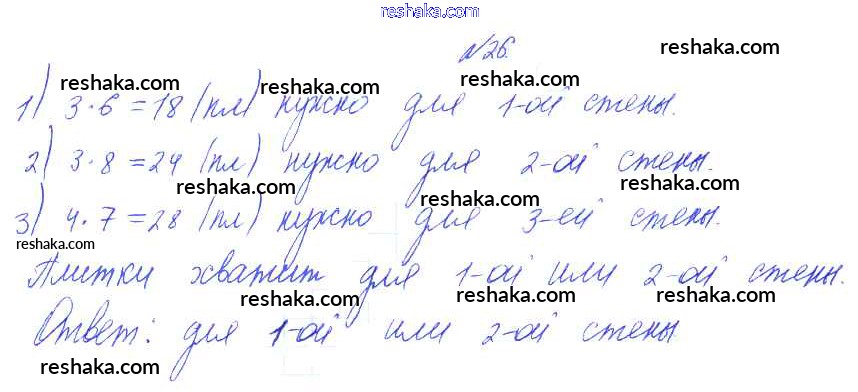 reshaka.com
№26.
reshaka.com
reshaka.com
reshaka.com
reshaka.com
1) 3·6=18 (пл) нужно для 1-ой стены.
reshaka.com
reshaka.com
2) 3·8=24 (пл) нужно для 2-ой стены.
reshaka.com
reshaka.com
3) 4·7=28 (пл) нужно для 3-ей стены.
reshaka.com
Плитки хватит для 1-ой или 2-ой стены.
reshaka.com
reshaka.com
reshaka.com
Ответ: для 1-ой или 2-ой стены.
reshaka.com
reshaka.com